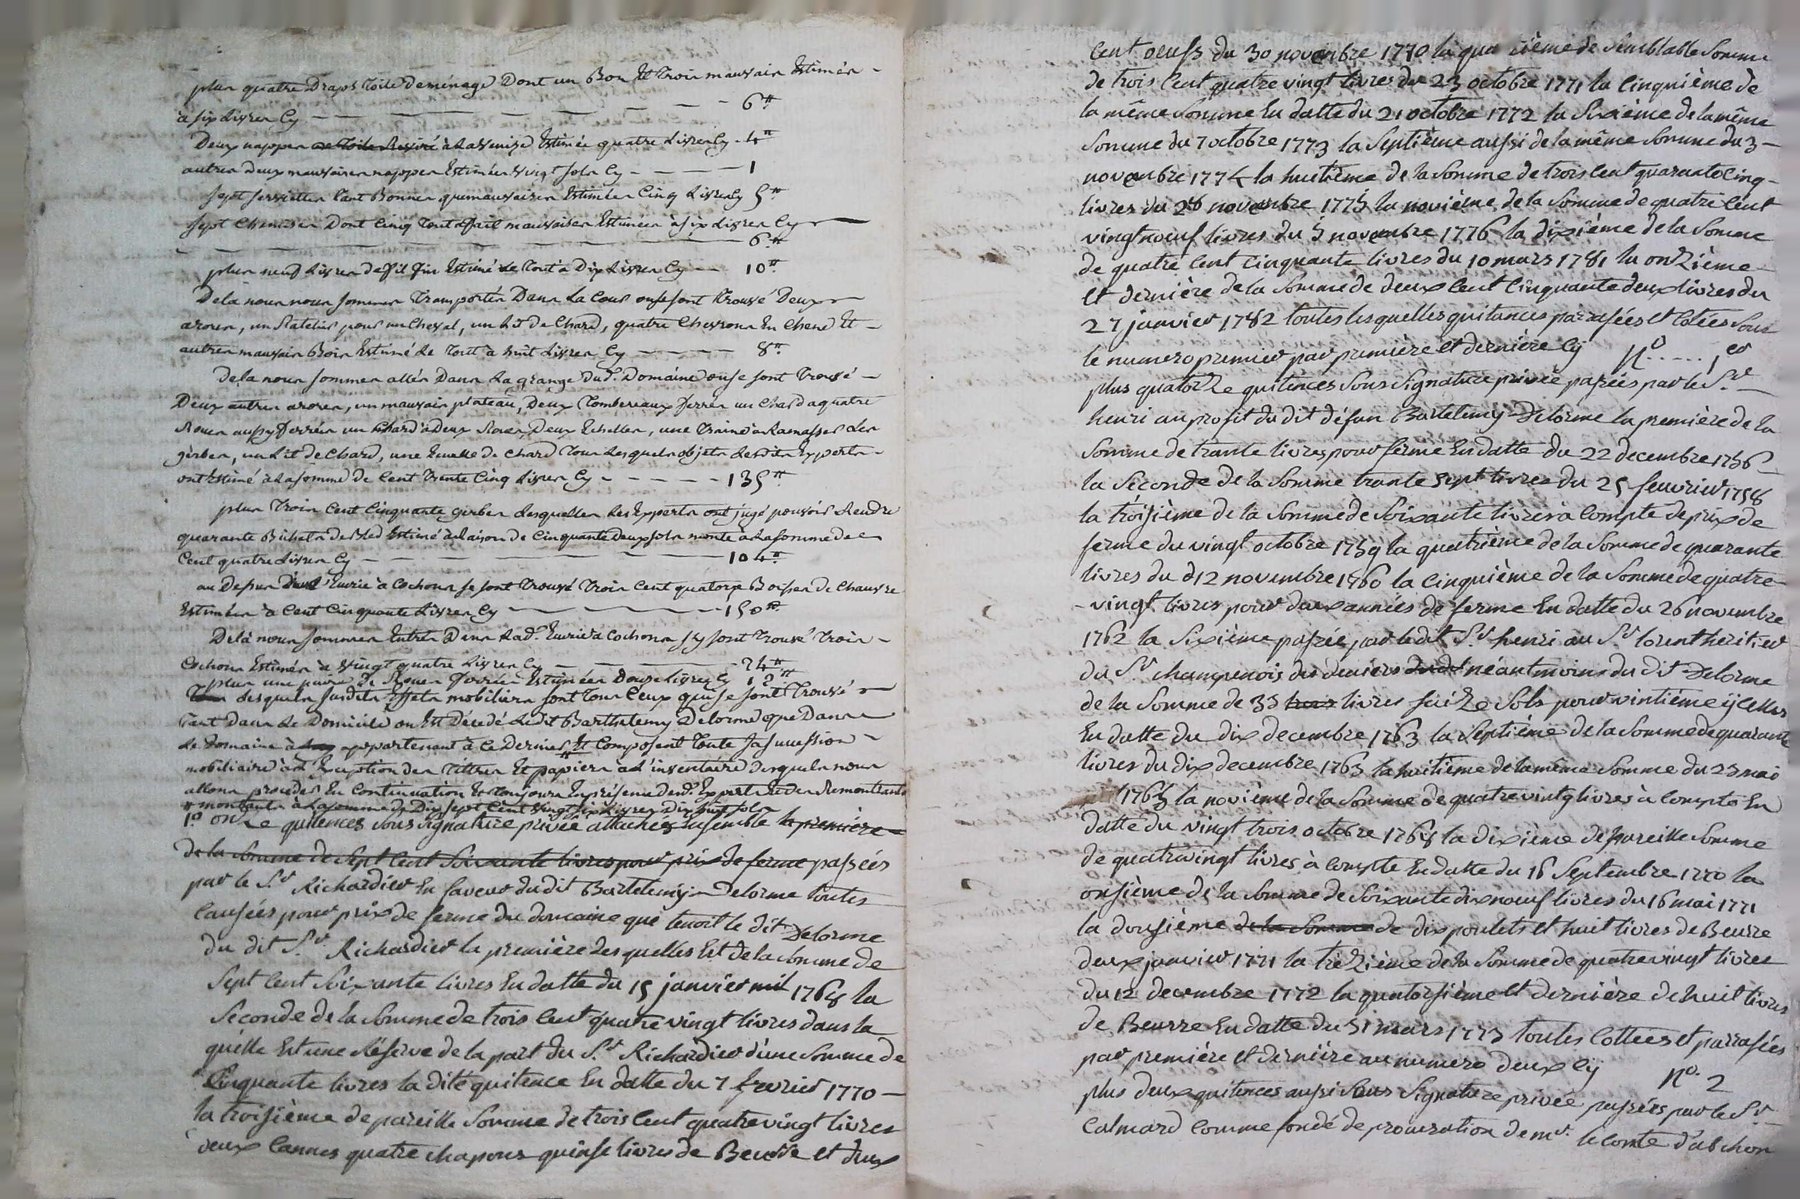 plus quatre Draps toile deménage Dont un Bon Et trois mauvais Estimés -
à six Livres Cy - - - - - - - 6#
Deux nappes de toile Estimée quatre Livres Cy - 4#
autres deux mauvaises nappes Estimées vingt sols Cy - - - - 1
sept serviettes tant Bonnes que mauvaises Estimées Cinq Livres Cy 5#
sept Chemises Dont Cinq tout affait mauvaises Estimées à six Livres Cy
6#
plus neuf Livres de fil fin Estimé le tout à Dix Livres Cy - - 10#
Delà nous nous sommes transportés Dans La Cour ou se sont trouvé Deux
araires, un Ratelier pour un Cheval, un Lit de Chard, quatre Chevrons En Chene Et -
autres mauvais Bois Estimé le tout à huit Livres Cy - - - - - 8#
dela nous sommes allés Dans La grange dud. Domaine ou se sont trouvé -
Deux autres araires, un mauvais plateau, Deux tombereaux ferrés un Chard a quatre
Roues aussy ferrées un Chard à deux Roues, Deux Echelles, une traine à Ramasser des
girbes, un Lit de Chard, une de Chard tous lesquels objets lesdits Experts -
ont Estimé à La somme de Cent trente Cinq Livres Cy - - - - - - 135#
plus trois Cent Cinquante girbes desquelles les Experts ont jugé pouvoir Rendre
quarante Bichets de bled Estimé à Raison de Cinquante deux sols monte à La somme de
Cent quatre Livres Cy - 104#
au dessus d'une Ecurie à Cochons se sont trouvé trois Cent quatorze Boisses de Chanvre
Estimées à Cent Cinquante Livres Cy 150#
Delà nous sommes Entrés Dans Lad. Ecurie à Cochons s'y sont trouvé trois -
Cochons Estimés à vingt quatre Livres Cy 24#
plus une paire de Roues ferrées Estimées douze livres Cy 12#
desquels susdits Effets mobiliers sont tous Ceux qui se sont trouvé
tant Dans Le Domicile ou Est Décédé Ledit Barthelemy Delorme que Dans
Le Domaine à appartenant à Ce Dernier, Et Composent toute sa succession -
mobiliaire à l'Exception des tittres Et papiers à L'inventaire desquels nous
allons procéder En Continuation Et toujours En présence desd. Experts Et des Remontrants
montant à La somme de Dix sept Cent vingt six Livres Dix huit sols
1° onze quitences sous signature privée attachés Ensemble la première
de la somme de sept cent soixante livres pour prix de ferme passées
par le Sr Richardier En faveur dudit Bartelemy Delorme toutes
causées pour prix de ferme du domaine que tenoit le dit Delorme
du dit Sr Richardier la première desquelles Est de la somme de
sept cent soixante livres En datte du 15 janvier mil 1768 la
seconde de la somme de trois cent quatre vingt livres dans la
quelle Est une Réserve de la part du Sr Richardier d'une somme de
Cinquante livres la dite quitence En datte du 7 fevrier 1770 -
la troisième de pareille somme de trois cent quatre vingt livres
deux cannes quatre chapons quinse livres de Beurre et deux
cent oeufs du 30 novembre 1770 la quatrième de semblable somme
de trois cent quatre vingt livres du 23 octobre 1771 la cinquième de
la même somme En datte du 21 octobre 1772 la sixième de la même
somme du 7 octobre 1773 la septième aussi de la même somme du 3 -
novembre 1774 la huitième de la somme de trois cent quarante cinq -
livres du 26 novembre 1775 la novième de la somme de quatre cent
vingt noeuf livres du 5 novembre 1776 la dixième de la somme
de quatre cent cinquante livres du 10 mars 1781 la onzième
et dernière de la somme de deux cent cinquante deux livres du
27 janvier 1782 toutes lesquelles quitances parafées et cotées sous
le numero premier par première et dernière Cy n° ..... 1er
plus quatorze quitences sous signature privée passées par le Sr
henri au profit du dit défun Bartelemy Delorme la première de la
somme de trante livres pour ferme En datte du 22 decembre 1756
la seconde de la somme trante sept livres du 25 feuvrier 1758
la troisième de la somme de soixante livres à compte de prix de
ferme du vingt octobre 1759 la quatrième de la somme de quarante
livres du d 12 novembre 1760 la cinquième de la somme de quatre -
- vingt livres pour deux années de ferme En datte du 26 novembre
1762 la sixième passée par ledit Sr henri au Sr lorent heritier
du Sr champenois des deniers néantmoins du dit Delorme
de la somme de 33 livres seize sols pour vintième ycelles
En datte du dix decembre 1763 la septième de la somme de quarante
livres du dix decembre 1763 la huitième de la même somme du 23 mai
1765 la novième de la somme de quatre vingt livres à compte En
datte du vingt trois octobre 1768 la dixième de pareille somme
de quatre vingt livres à compte En datte du 18 septembre 1770 la
onsième de la somme de soixante dix noeuf livres du 16 mai 1771
la dousième de la somme de dix poulets et huit livres de Beurre
deux janvier 1771 la trezieme de la somme de quatre vingt livres
du 12 decembre 1772 la quatorsième et dernière de huit livres
de Beurre En datte du 31 mars 1773 toutes cottées et parrafées
par première et dernière au numero deux Cy n°. 2
plus deux quitences aussi sous signature privée passées par le Sr
Calmard comme fondé de procuration de mr. le comte d'abchon